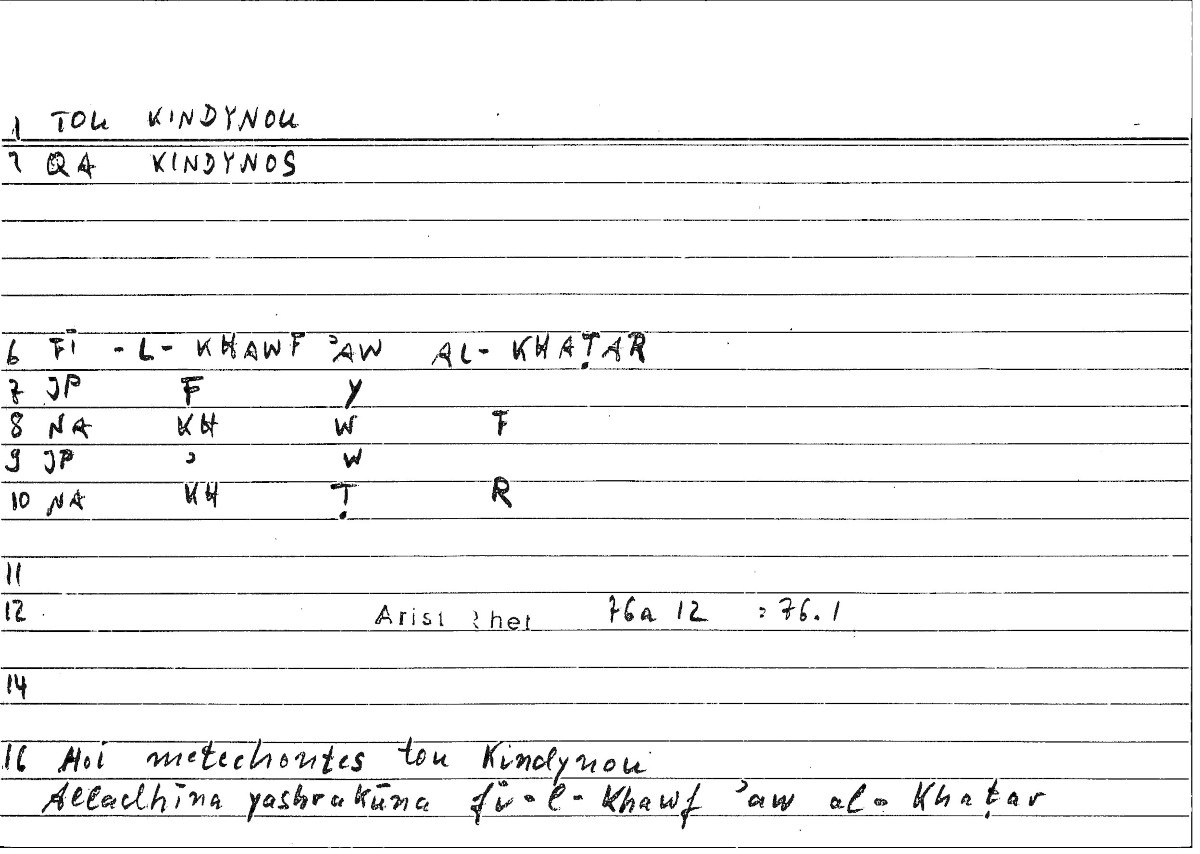 1 TOU KINDYNOU
2 QA KINDYNOS
6 FĪ -L- KHAWF ʾAW AL- KHAṬAR
7 JP F Y
8 NA KH W F
9 JP ʾ W
10 NA KH Ṭ R
11
12 Arist Rhet 76a 12 = 76.1
14
16 Hoi metechontes tou Kindynou
Alladhīna yashrakūna fī-l-Khawf ʾaw al-Khaṭar